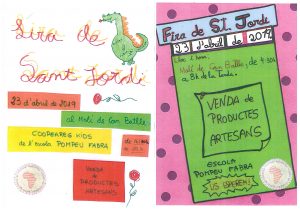 Fira de
Sant Jordi
23 d'abril de 2019
al Molí de Can Batlle
COOPEARG KIDS
de l'escola POMPEU FABRA
VENDA
de
PRODUCTES
ARTESANS
Fira de St. Jordi
23 d'abril de 2019
Molí de Can Batlle, de 4:30h
a 8h de la tarda.
VENDA de
PRODUCTES
ARTESANS
ESCOLA
POMPEU FABRA
US ESPEREM!